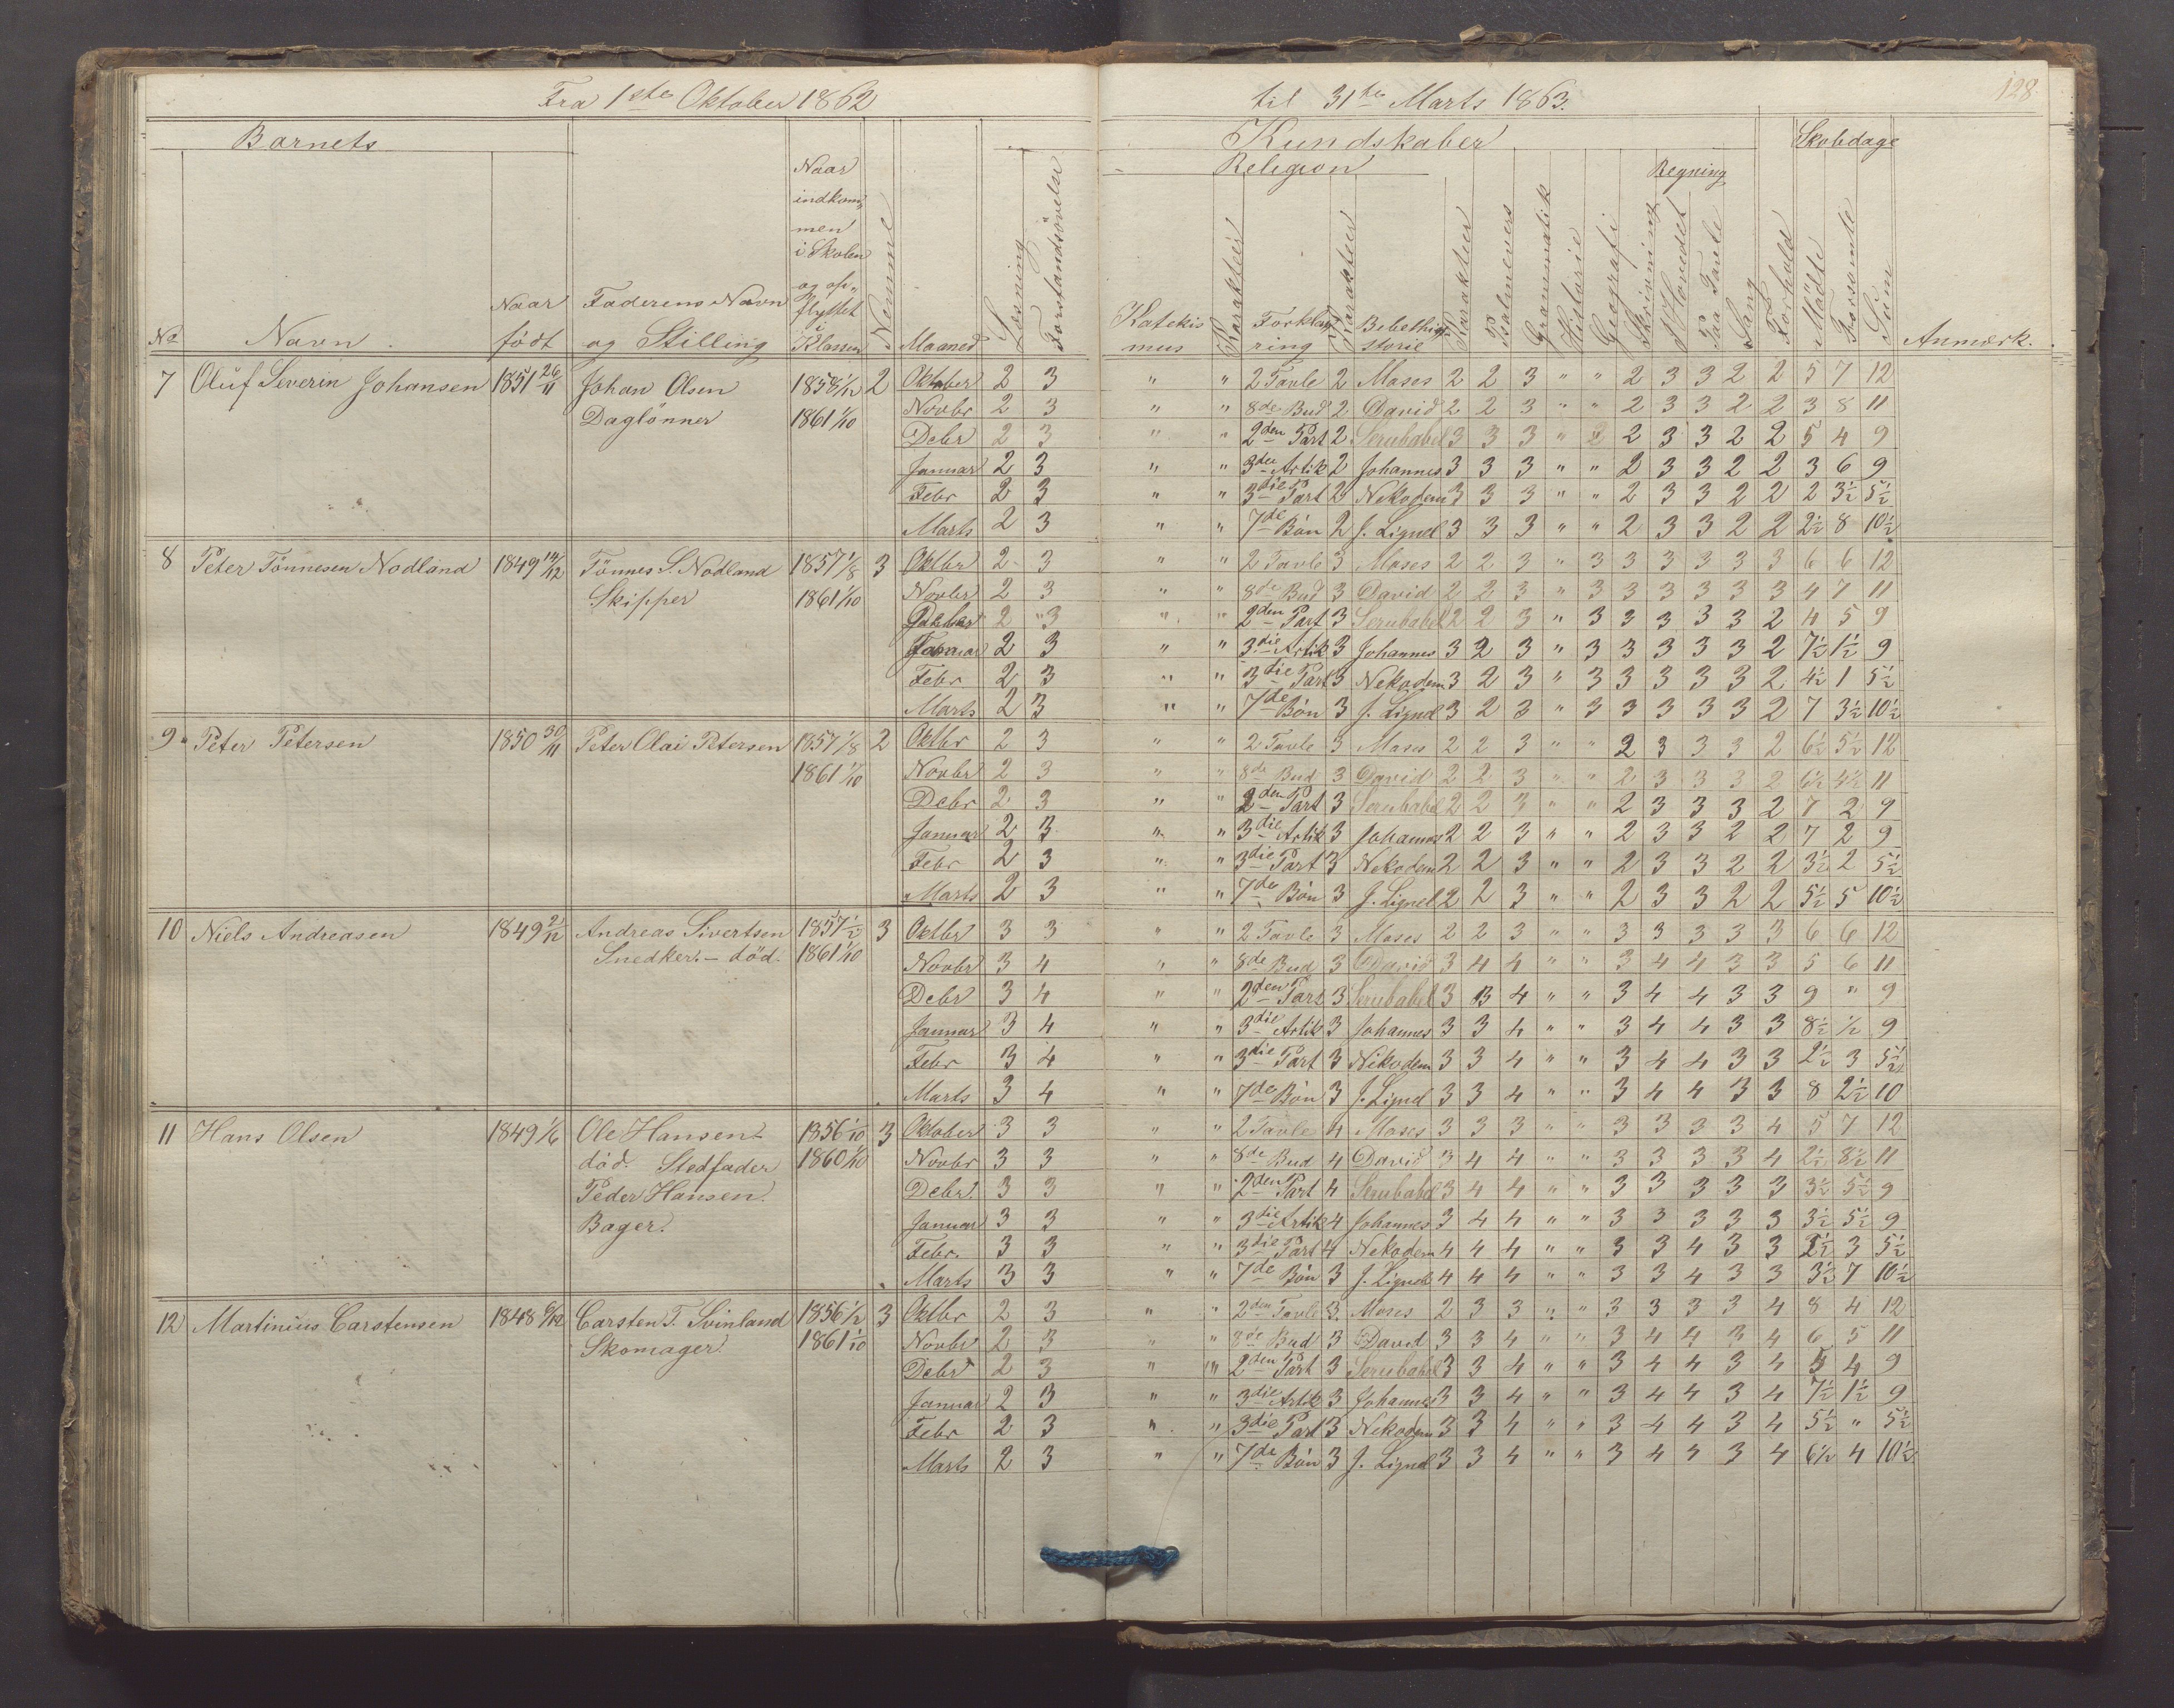 Fra 1ste Oktober 1862 til 31te Marts 1863. 128
Barnets Kundskaber Skoledage
Religion Regning
No Navn. Naar født Faderens Navn og Stilling Naar indkommen i Skolen og opflyttet i Klassen Maaned Læsning Forstandsøvelse Katekismus Karakter Forklaring Karakter Bibelhistorie Karakter Psalmevers Grammatik Historie Geografi Skrivning I Hovedet Paa Tavle Sang Forhold Mødte Forsømte Sum Anmærk.
7 Oluf Severin Johansen 1851 26/11 Johan Olsen 1858 1/12 2 Oktober 2 3 " " 2 Tavle 2 Moses 2 2 3 " " 2 3 3 2 2 5 7 12
Daglønner 1861 1/10 Novbr 2 3 " " 8de Bud 2 David 2 2 3 " " 2 3 3 2 2 3 8 11
Debr 2 3 " " 2den Part 2 Serubabel 3 3 3 " 2 3 3 2 2 5 4 9
Januar 2 3 " " 3die Artik 2 Johannes 3 3 3 " " 2 3 3 2 2 3 6 9
Febr 2 3 " " 3die Part 2 Nekodem 3 3 3 " " 2 3 3 2 2 2 3½ 5½
Marts 2 3 " " 7de Bøn 2 J. Lignel 3 3 3 " " 2 3 3 2 2 2½ 8 10½
8 Peter Tönnesen Nodland 1849 14/12 Tönnes S. Nodland 1857 1/8 3 Oktbr 2 3 " " 2 Tavle 3 Moses 2 2 3 " 3 3 3 3 3 3 6 6 12
Skipper 1861 1/10 Novbr 2 3 " " 8de Bud 3 David 2 2 3 " 3 3 3 3 3 3 4 7 11
2 3 " " 2den Part 3 Serubabel 2 2 3 " 3 3 3 3 3 2 4 5 9
Januar 2 3 " " 3die Artik 3 Johannes 3 2 3 " 3 3 3 3 3 2 7½ 1½ 9
Febr 2 3 " " 3die Part 3 Nekodem 3 2 3 " 3 3 3 3 3 2 4½ 1 5½
Marts 2 3 " " 7de Bøn 3 J. Lignel 3 2 3 " 3 3 3 3 3 2 7 3½ 10½
9 Peter Petersen 1850 30/11 Peter Olai Petersen 1857 1/8 2 Oktbr 2 3 " " 2 Tavle 3 Moses 2 2 3 " " 2 3 3 3 2 6½ 5½ 12
1861 1/10 Novbr 2 3 " " 8de Bud 3 David 2 2 3 " " 2 3 3 3 2 6½ 4½ 11
Debr 2 3 " " 2den Part 3 Serubabel 2 2 3 " " 2 3 3 3 2 7 2 9
Januar 2 3 " " 3die Artik 3 Johannes 2 2 3 " " 2 3 3 2 2 7 2 9
Febr 2 3 " " 3die Part 3 Nekodem 2 2 3 " " 2 3 3 2 2 3½ 2 5½
Marts 2 3 " " 7de Bøn 3 J. Lignel 2 2 3 " " 2 3 3 2 2 5½ 5 10½
10 Niels Andreasen 1849 2/12 Andreas Sivertsen 1857 1/2 3 Oktbr 3 3 " " 2 Tavle 3 Moses 2 2 3 " " 3 3 3 3 3 6 6 12
Snedker. – død. 1861 1/10 Novbr 3 4 " " 8de Bud 3 David 3 4 4 " " 3 4 4 3 3 5 6 11
Debr 3 4 " " 2den Part 3 Serubabel 3 3 4 " " 3 4 4 3 3 9 " 9
Januar 3 4 " " 3die Artik 3 Johannes 3 3 4 " " 3 4 4 3 3 8½ ½ 9
Febr 3 4 " " 3die Part 3 Nikodem 3 3 4 " " 3 4 4 3 3 2½ 3 5½
Marts 3 4 " " 7de Bøn 3 J. Lignel 3 3 4 " " 3 4 4 3 3 8 2½ 10
11 Hans Olsen 1849 1/6 Ole Hansen 1856 1/10 3 Oktober 3 3 " " 2 Tavle 4 Moses 3 3 3 " " 3 3 3 3 4 5 7 12
død. Stedfader 1860 1/10 Novbr 3 3 " " 8de Bud 4 David 3 4 4 " " 3 3 3 3 4 2½ 8½ 11
Peder Hansen. Debr. 3 3 " " 2den Part 4 Serubabel 3 4 4 " " 3 3 3 3 3 3½ 5½ 9
Bager. Januar 3 3 " " 3die Artik 4 Johannes 3 4 4 " " 3 3 3 3 3 3½ 5½ 9
Febr. 3 3 " " 3die Part 4 Nekodem 4 4 4 " " 3 3 4 3 3 2½ 3 5½
Marts 3 3 " " 7de Bøn 3 J. Lignel 4 4 4 " " 3 3 4 3 3 3½ 7 10½
12 Martinius Carstensen 1848 Carsten T. Svinland 1856 1/2 3 Oktbr 2 3 " " 2den Tavle 3. Moses 2 3 3 " " 3 3 3 3 4 8 4 12
Skomager. 1861 1/10 Novbr 2 3 " " 8de Bud 3 David 3 3 4 " " 3 4 4 3 4 6 5 11
Debr 2 3 " " 2den Part 3 Serubabel 3 3 4 " " 3 4 4 3 4 5 4 9
Januar 2 3 " " 3die Artik 3 Johannes 3 3 4 " " 3 4 4 3 4 7½ 1½ 9
Febr 2 3 " " 3die Part 3 Nekodem 3 3 4 " " 3 4 4 3 4 5½ " 5½
Marts 2 3 " " 7de Bøn 3 J. Lignel 3 3 4 " " 3 4 4 3 4 6½ 4 10½